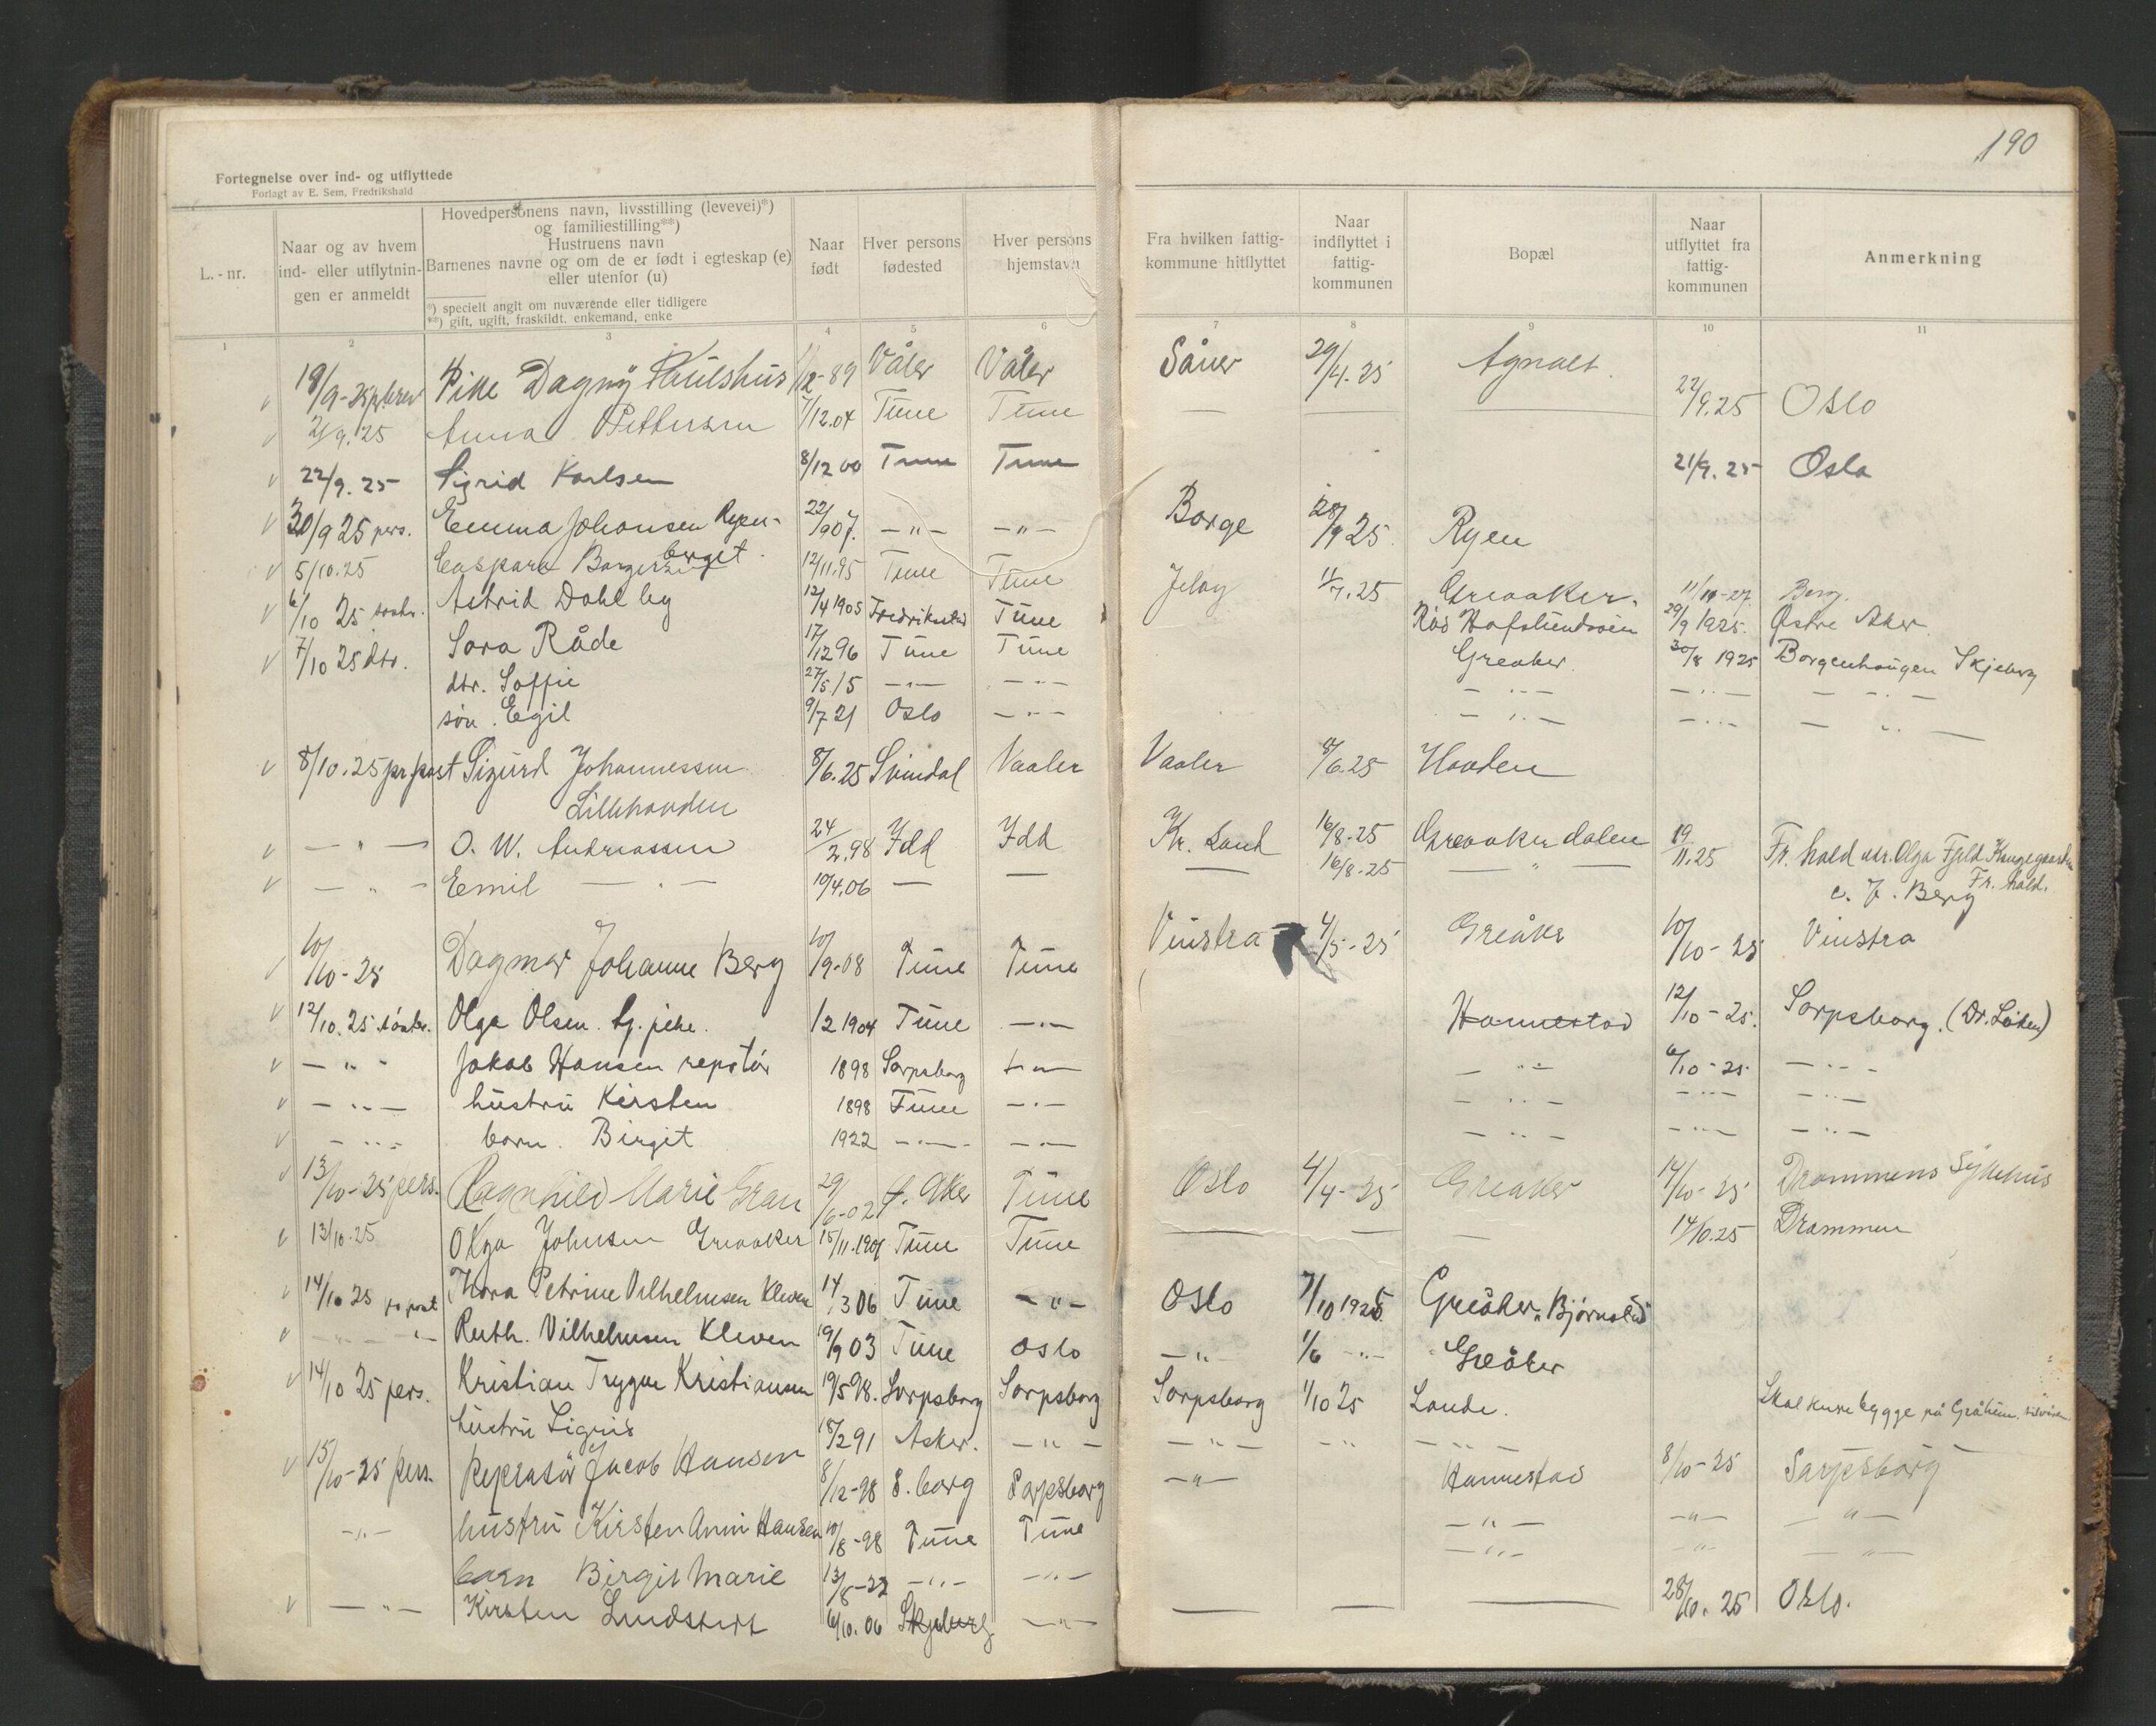 190
Fortegnelse over ind- og utflyttede
Forlagt av E. Sem, Fredrikshald
L.-nr.
Naar og av hvem ind- eller utflytnin- gen er anmeldt
Hovedpersonens navn, livsstilling (levevei)*)
og familiestilling**)
Hustruens navn
Barnenes navne og om de er født i egteskap (e)
eller utenfor (u)
*) specielt angit om nuværende eller tidligere
**) gift, ugift, fraskildt. enkemand, enke
Naar født
Hver persons fødested
Hver persons hjemstavn
Fra hvilken fattig- kommune hitflyttet
Naar indflyttet i fattig- kommunen
Bopæl
Naar utflyttet fra fattig- kommunen
Anmerkning
1 2 3 4 5 6 7 8 9 10 11
Pike Dagny Våler Våler Såner 29/4.25 Agnalt
21/9.25 Anna Pettersen 7/12.04 Tune Tune — 22/9.25 Oslo
22/9.25 Sigrid Karlsen 8/12 00 Tune Tune 21/9.25 Oslo
30/9 25 pers. Emma Johansen Ryen 22/9 07. —"— —"— Borge 28/9 25. Ryen
5/10.25 12/11.95 Tune Tune Jeløy 11/7.25 Greaaker 11/10-27 Berg.
6/10 25 Astrid Dahl 12/4 1905 Fredrikstad Tune Hafslundsveien 29/9 1925. Østre Aker
7/10 25 dtr. Sara Råde 17/12 96 Tune Tune Greaker. 30/8 1925 Borgenhaugen Skjeberg
dtr. Soffie 27/5.15 —"— —"— —"— —"— —"—
søn. Egil 9/7 21 Oslo —"— —"— —"— —"—
8/10.25 pr. post Sigurd Johannessen 8/6.25 Svindal Vaaler Vaaler 8/6.25 Haaden
Lillehaaden
—"— O. W. Andreassen 24/2.98 Idd Idd Kr. Sand 16/8-25 Greaakerdalen 19/11.25 Fr. hald adr. Olga Fjeld Kongegaarden
—"— Emil —"— 10/4.06 — — — 16/8-25 —"— Fr. hald.
c. J. Berg
10/10-25 Dagmar Johanne Berg 10/9-08 Tune Tune Vinstra 4/5-25 Greåker 10/10-25 Vinstra
12/10.25 Olga Olsen 1904 Tune —"— Hannestad 12/10-25. Sarpsborg. (Dr. Løken)
—"— Jakob Hansen repatør 1898 Sarpsborg —"— —"— 6/10-25 —"—
—"— hustru Kirsten 1898 Tune —"— —"— —"— —"—
—"— barn. Birgit 1922 —"— —"— —"— —"— —"—
13/10-25 pers. Ragnhild Marie Gran 29/6-02 Ø. Aker Tune Oslo 4/4-25 Greaker 14/10-25 Drammens Sykehus
13/10.25 Olga Johnsen Greaaker 15/11.1901 Tune Tune — — — 14/10.25 Drammen
14/10 25 pr post Thora Petrine Vilhelmsen Kleven 14/3 06 Tune —"— Oslo 7/10 1925 Greåker "Bjørnstad"
—"— Ruth. Vilhelmsen Kleven 19/9 03 Tune Oslo —"— 1/6 —"— Greåker
14/10 25 pers. Kristian Trygve Kristiansen 19/5 98. Sarpsborg Sarpsborg Sarpsborg 1/10 25 Lande. Skal kune bygge på
hustru Sigrid 18/2 91 Asker. —"— —"— —"— —"—
15/10-25 pers. Repratør Jacob Hansen 8/12-98 S.borg Sarpsborg —"— Hannestad 8/10-25 Sarpsborg
—"— hustru Kirsten Anni Hansen 10/8-98 Tune Tune —"— —"— —"—
barn Birgit Marie 13/8-22 —"— —"— —"— —"— —"—
—"— Kirsten 6/10.06 Skjeberg —"— — — — 28/10.25 Oslo.